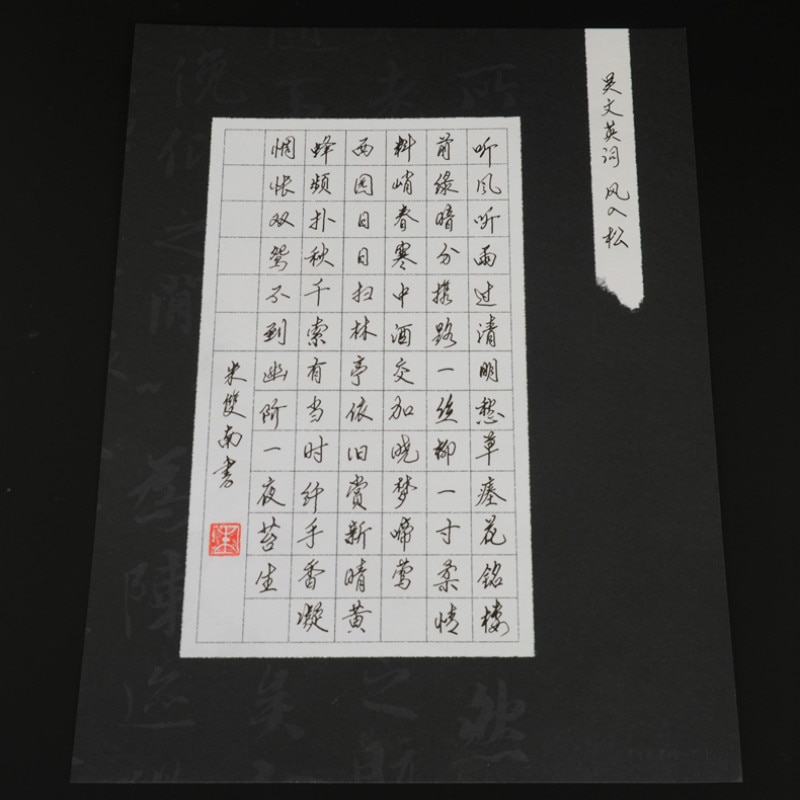 吴文英词 风入松
听风听雨过清明愁草瘗花铭楼
前绿暗分携路一丝柳一寸柔情
料峭春寒中酒交加晓梦啼莺
西园日日扫林亭依旧赏新晴黄
蜂频扑秋千索有当时纤手香凝
惆怅双鸳不到幽阶一夜苔生
朱雙南書